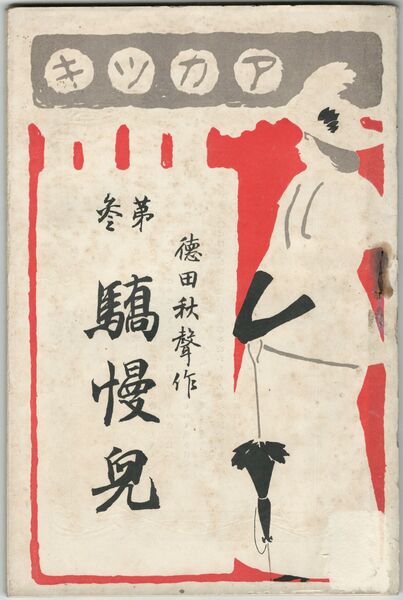 アカツキ
第
参
徳田秋聲作
驕慢兒